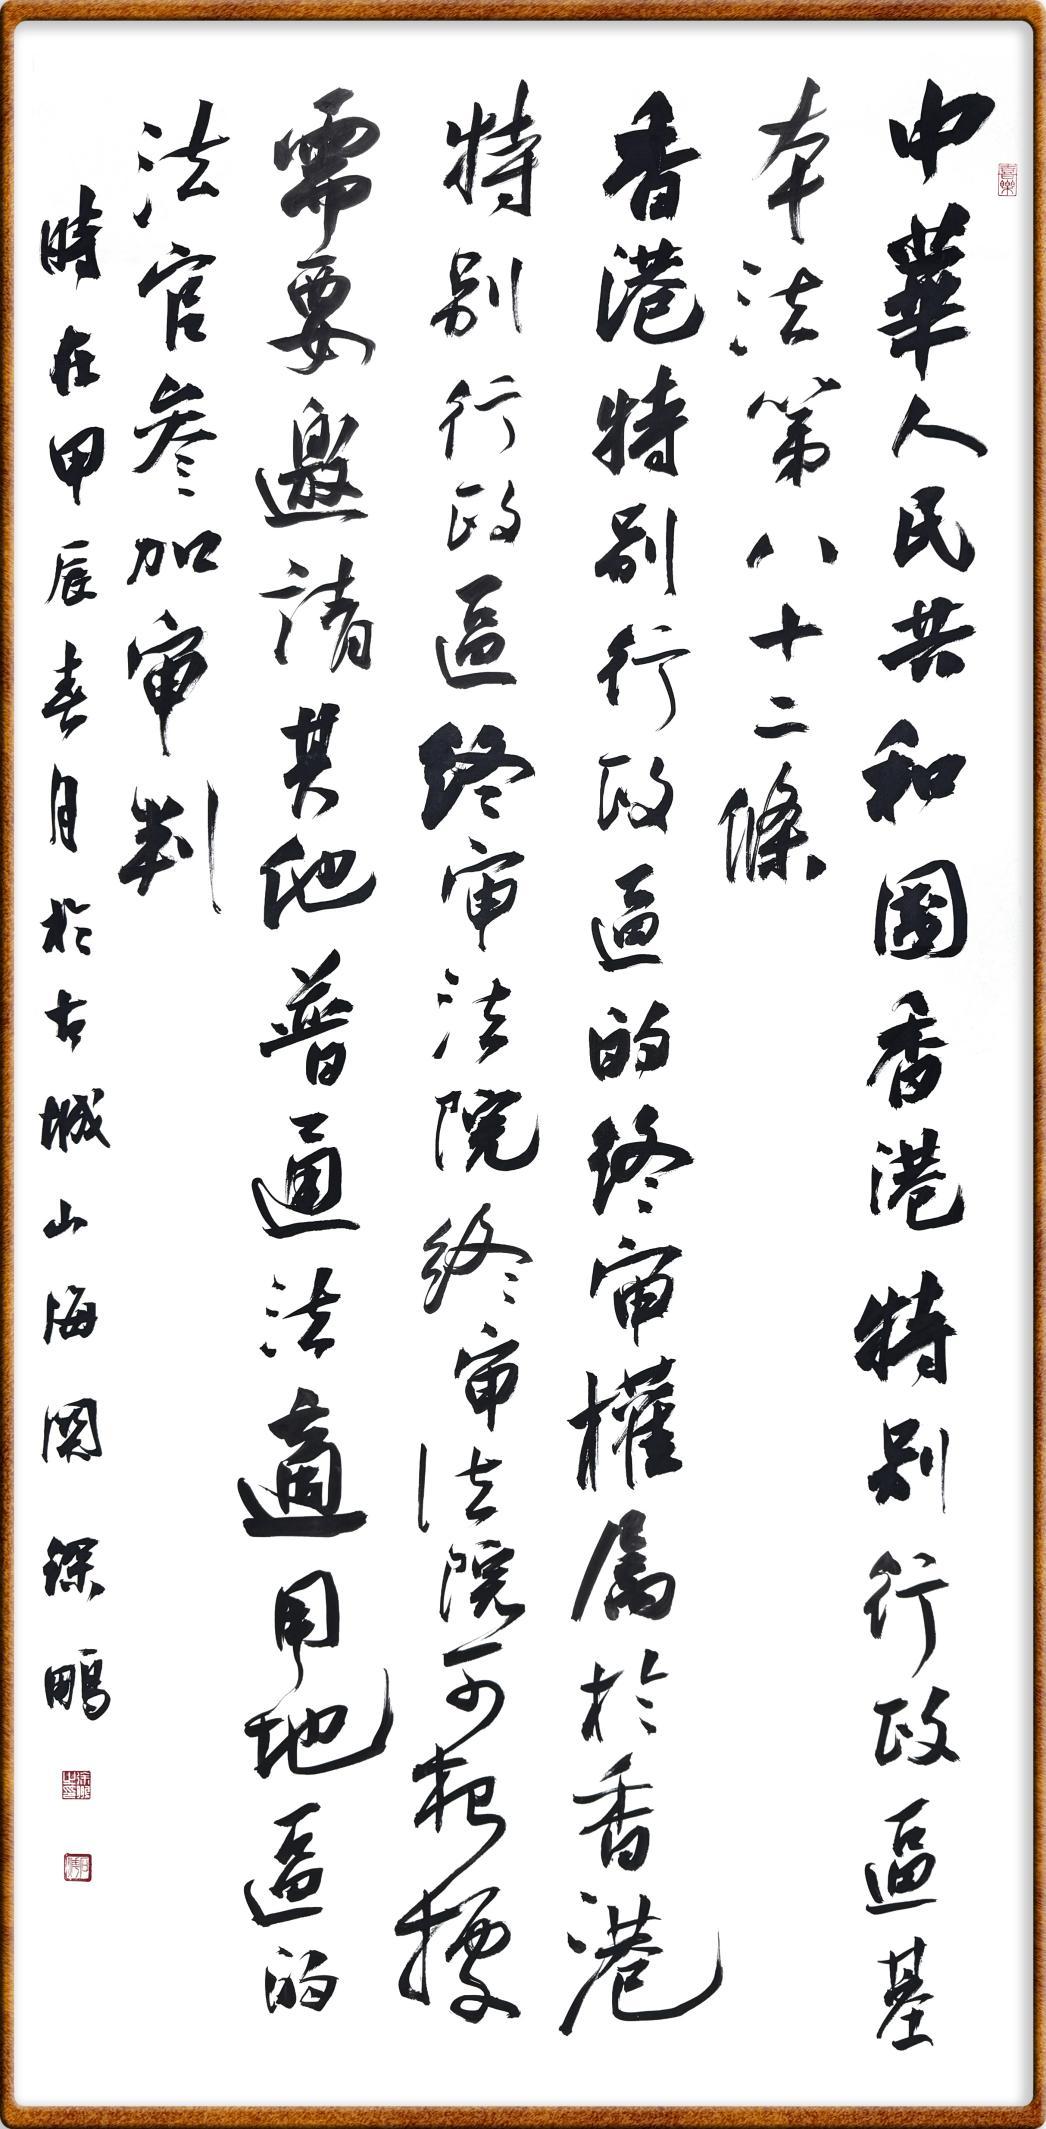 中華人民共和國香港特别行政區基
本法第八十二條
香港特别行政區的终审權属於香港
特别行政區终审法院终审法院可根據
需要邀請其他普通法適用地區的
法官参加审判
時在甲辰春月於古城山海関深鵬
喜樂